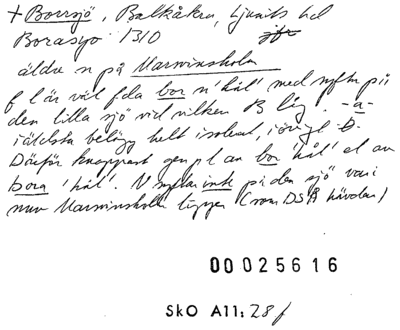 + Borrsjö, Balkåkra, Ljunits hd
Borasyo 1310
äldre n på Marsvinsholm
f l är väl fda bor n 'hål' med syftn på
den lilla sjö vid vilken B låg. -a-
i äldsta belägg helt isolerat, i övr gl
Därför knappast gen pl av bor 'hål' el av
bora 'hål'. N syftar inte på den sjö vari
nuv Marsvinsholm ligger (som DSÅ hävdar)
00025616
SkO A11: 28 f